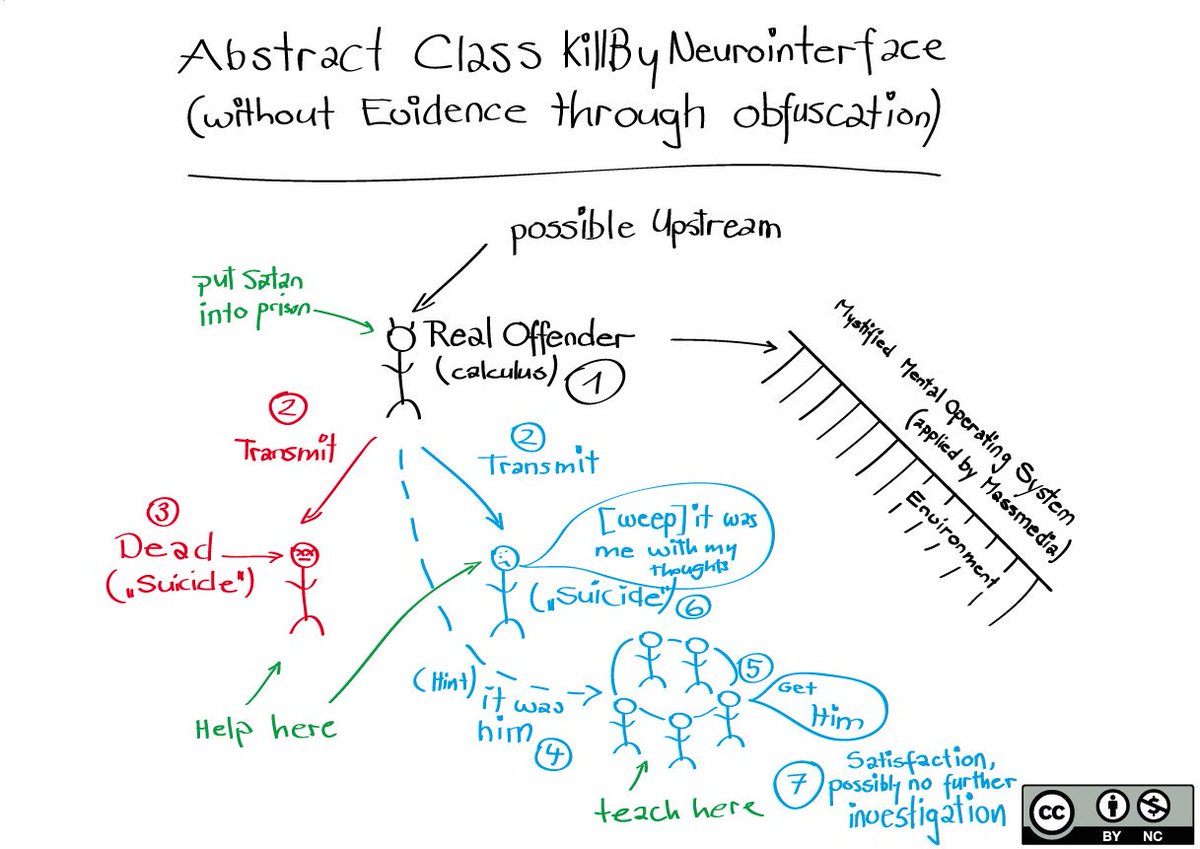 Abstract Class KillByNeurointerface
(without Evidence through obfuscation)
possible Upstream
put Satan
into prison
Real Offender
(calculus) 1
Mystified Mental Operating System
(applied by Massmedia)
Environment
2
Transmit
2
Transmit
3
Dead
(„Suicide")
[weep] it was
me with my
thoughts
(„Suicide") 6
Help here
(Hint) it was
him 4
5
Get
Him
teach here
7 Satisfaction,
possibly no further
investigation
cc
BY NC